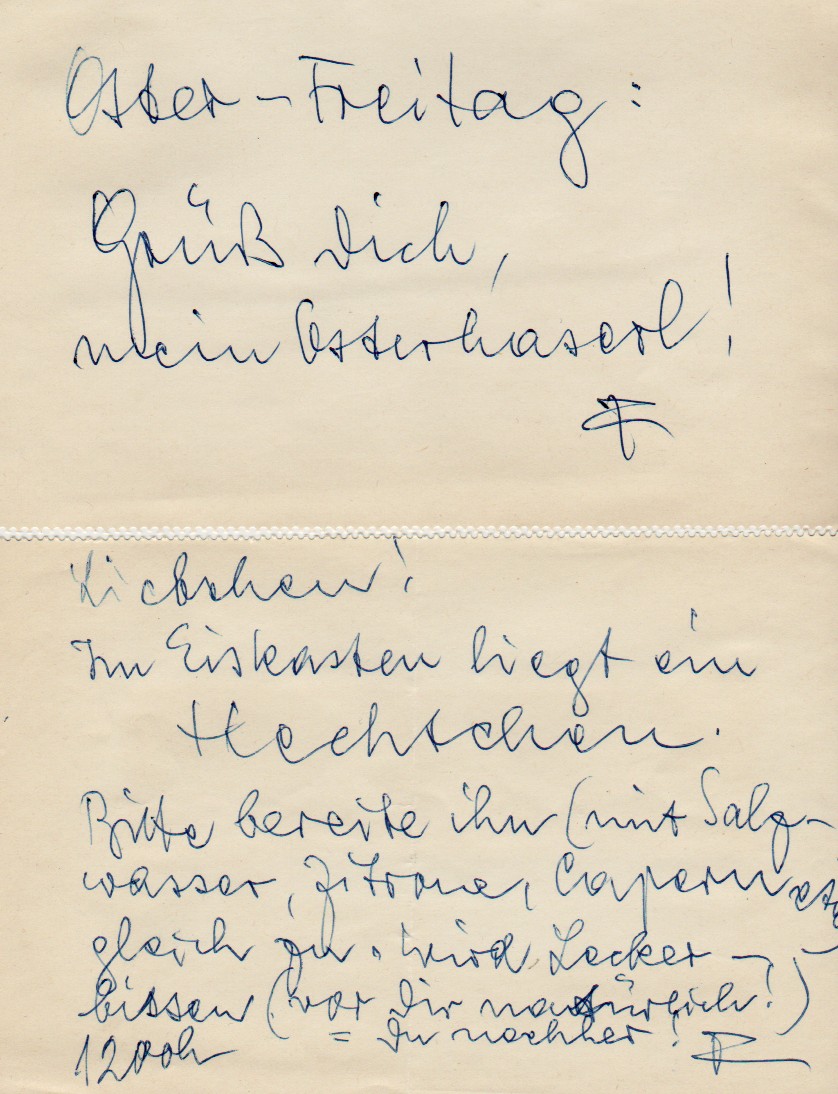 Oster-Freitag:
Grüß Dich,
mein Osterhaserl!
Liebchen!
Im Eiskasten liegt ein
Hechtchen.
Bitte bereite ihn (mit Salz-
wasser, Zitrone, Capern etc.
gleich zu. Wird Lecker-
bissen (vor Dir natürlich!)
= Du nachher!
1200h